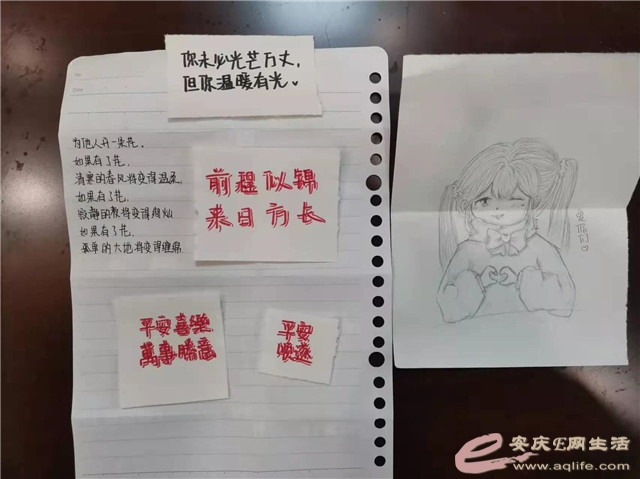 你未必光芒万丈,
但你温暖有光。
为他人开一朵花,
如果有了花,
清寒的春风将变得温柔
如果有了花,
寂静的将变得
如果有了花,
的大地将变得
前程似锦
来日方长
平安喜樂
萬事勝意
平安
顺遂
爱你们♡
安庆E网生活
www.aqlife.com